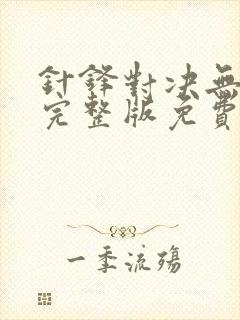 針鋒對決無
完整版免費
一季流殤